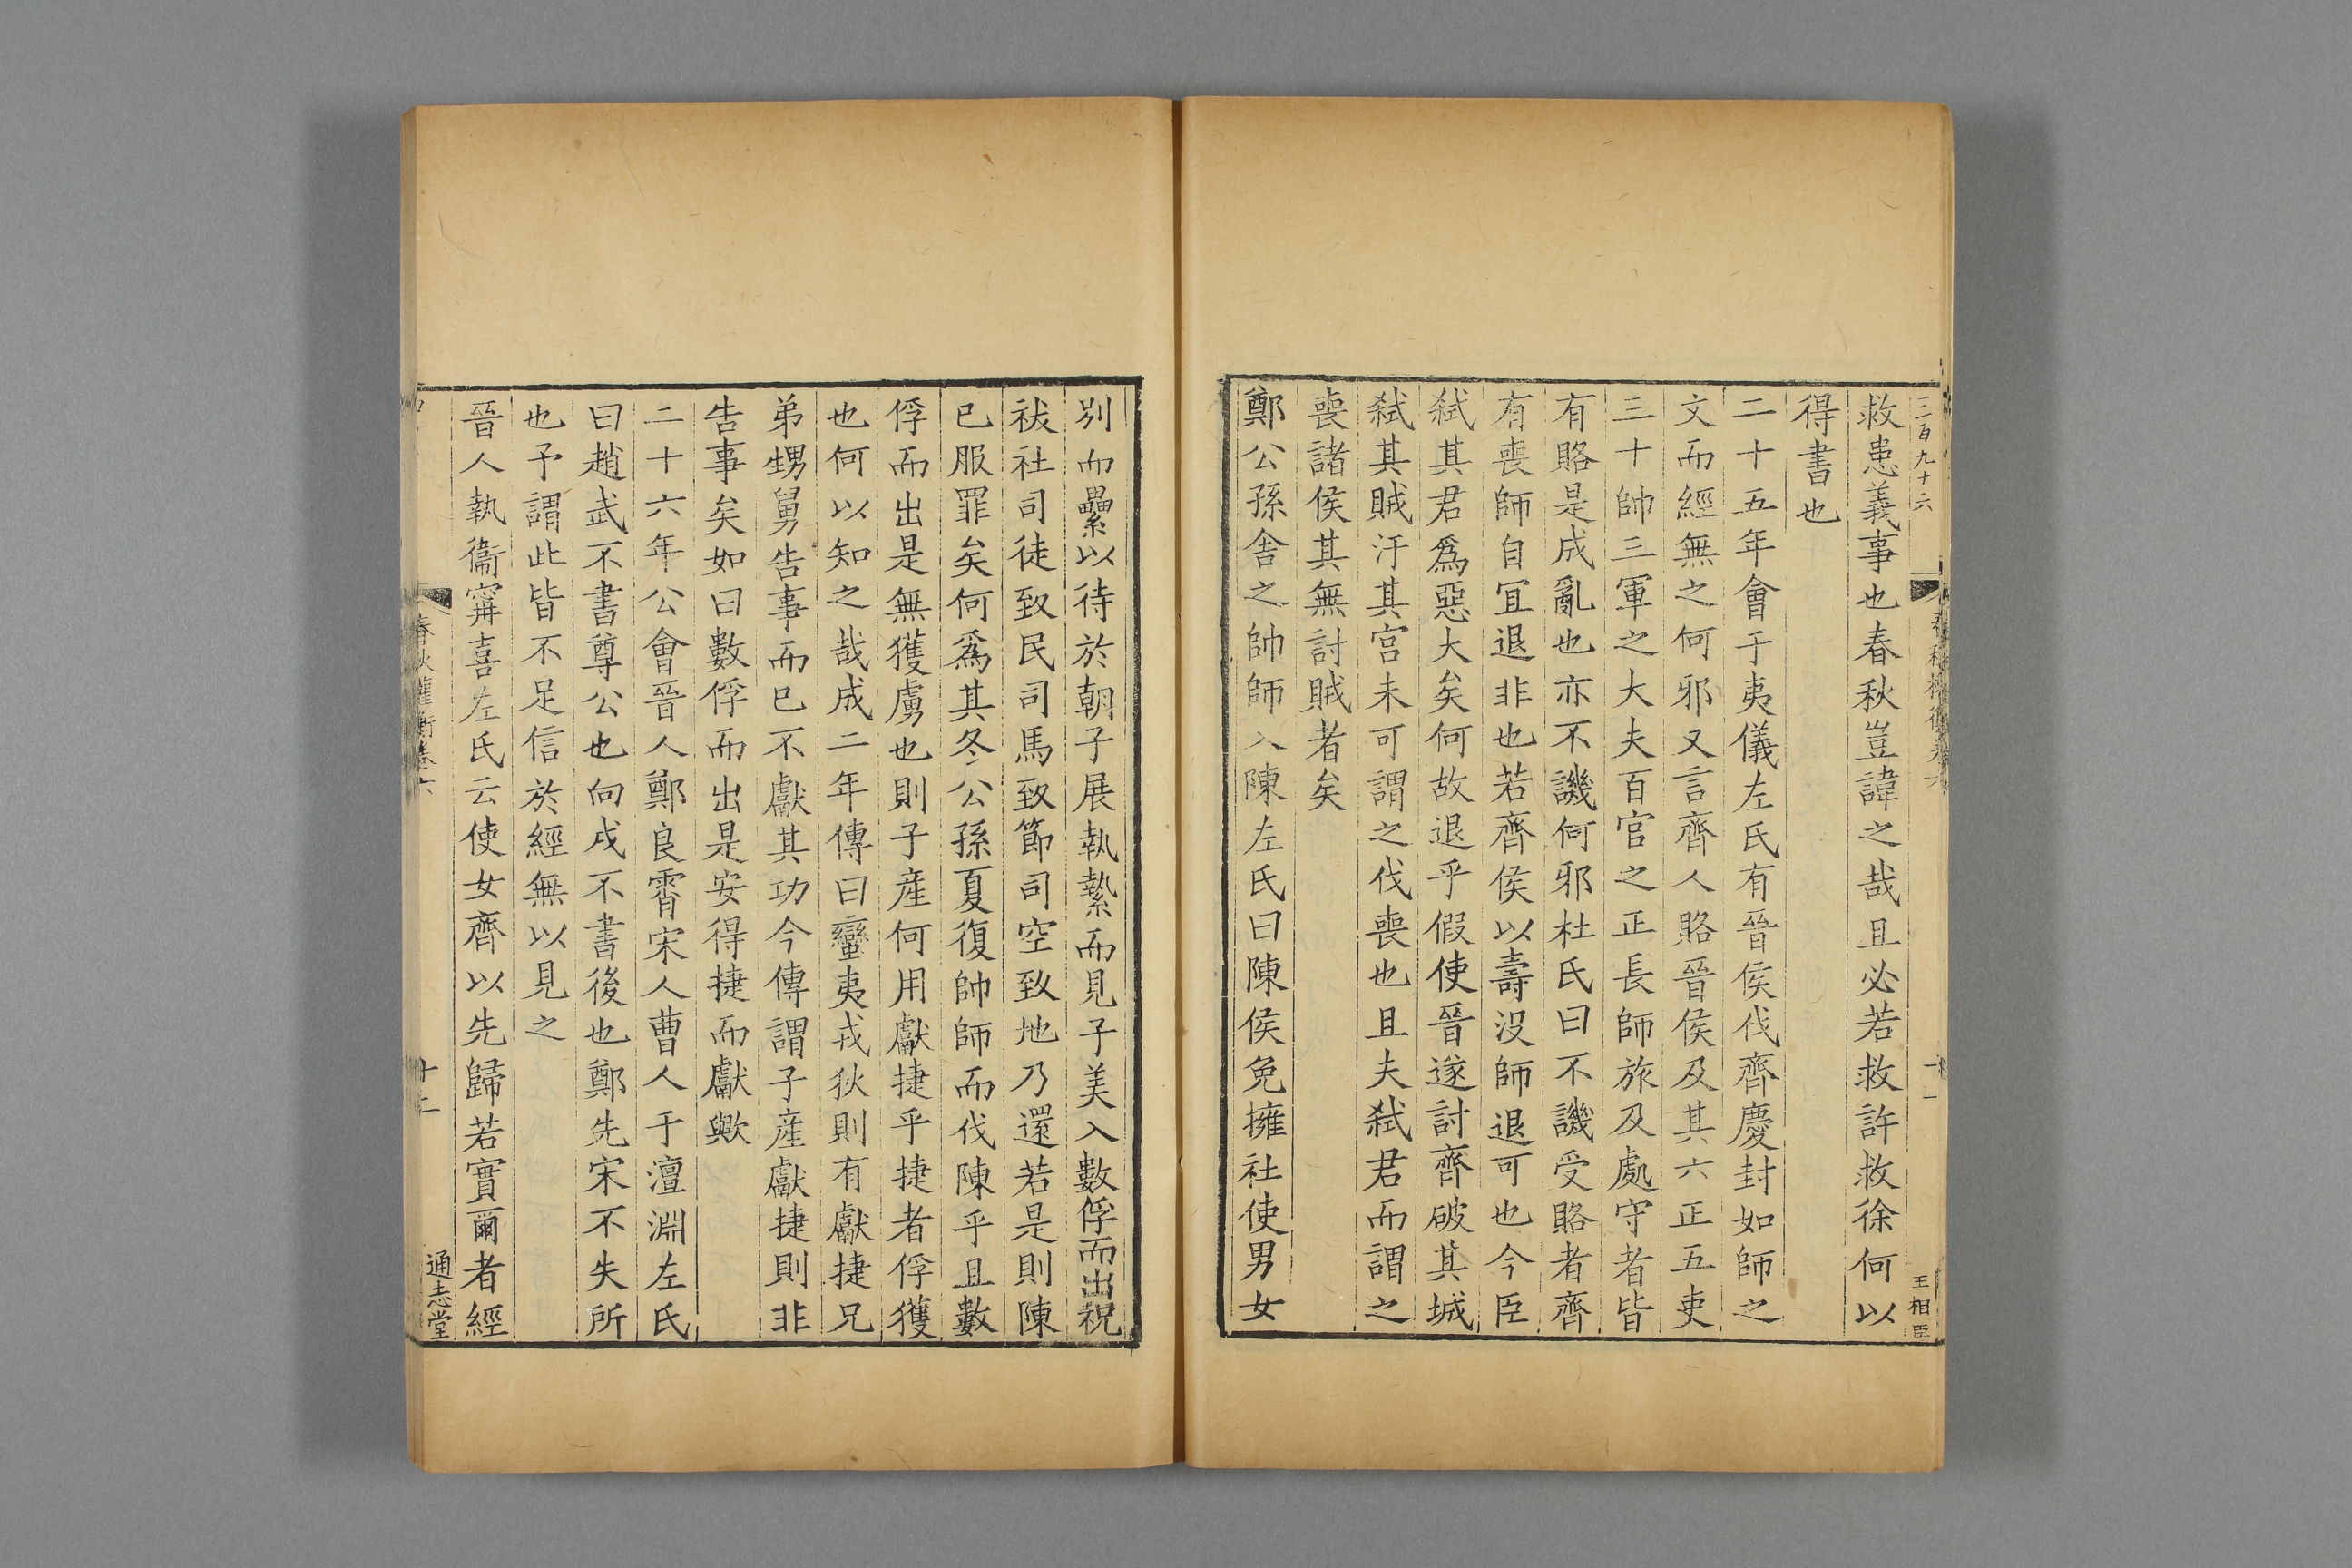 三百九十六
春秋權衡卷六
十一
王相臣
救患義事也春秋豈諱之哉且必若救許救徐何以
得書也
二十五年會于夷儀左氏有晉侯伐齊慶封如師之
文而經無之何邪又言齊人賂晉侯及其六正五吏
三十帥三軍之大夫百官之正長師旅及處守者皆
有賂是成亂也亦不譏何邪杜氏曰不譏受賂者齊
有喪師自宜退非也若齊侯以壽没師退可也今臣
弑其君爲惡大矣何故退乎假使晉遂討齊破其城
弑其賊汙其宫未可謂之伐喪也且夫弑君而謂之
喪諸侯其無討賊者矣
鄭公孫舍之帥師入陳左氏曰陳侯免擁社使男女
别而纍以待於朝子展執縶而見子美入數俘而出祝
祓社司徒致民司馬致節司空致地乃還若是則陳
已服罪矣何爲其冬公孫夏復帥師而伐陳乎且數
俘而出是無獲虜也則子産何用獻捷乎捷者俘獲
也何以知之哉成二年傳曰蠻夷戎狄則有獻捷兄
弟甥舅告事而已不獻其功今傳謂子産獻捷則非
告事矣如曰數俘而出是安得捷而獻歟
二十六年公會晉人鄭良霄宋人曹人于澶淵左氏
曰趙武不書尊公也向戌不書後也鄭先宋不失所
也予謂此皆不足信於經無以見之
晉人執衞甯喜左氏云使女齊以先歸若實爾者經
春秋權衡卷六
十二
通志堂